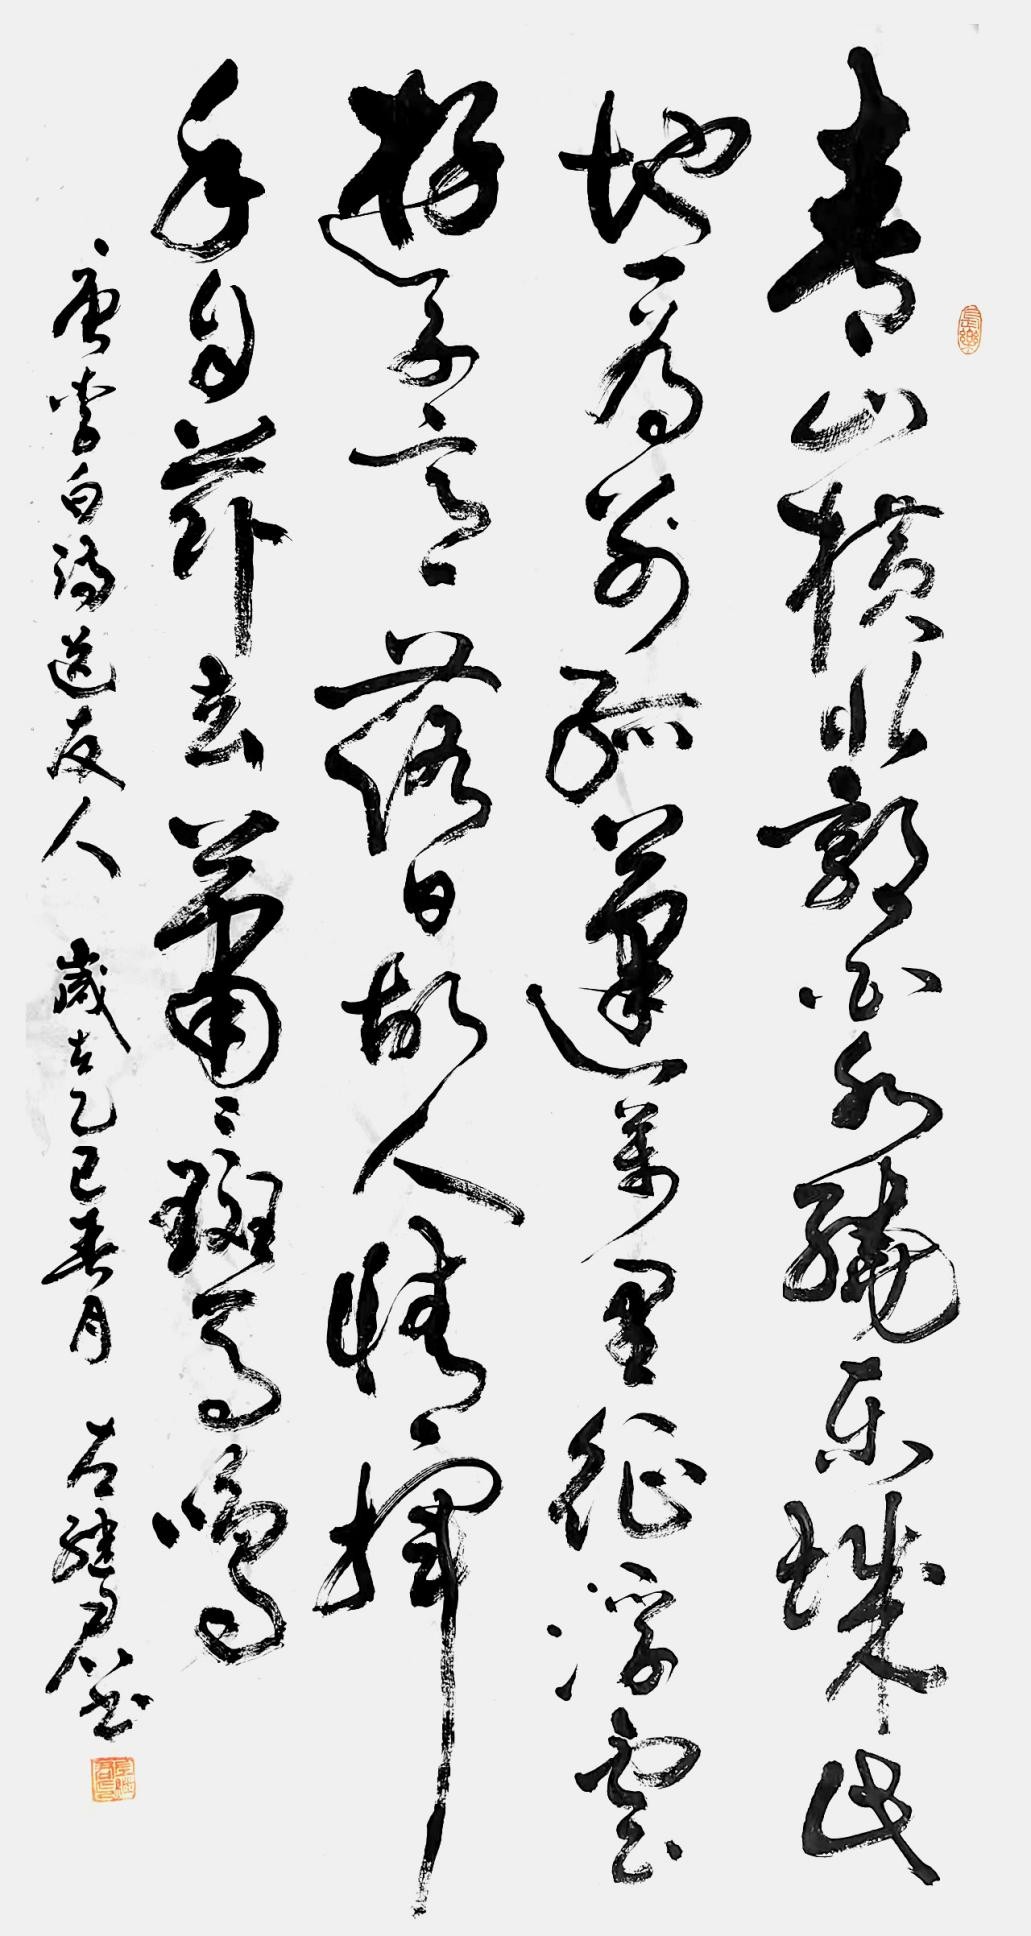 長樂
青山橫北郭白水繞東城此
地一為別孤蓬萬里征浮雲
遊子意落日故人情揮
手自茲去蕭〻斑馬鳴
唐李白詩送友人 歲在乙巳春月 繼君書